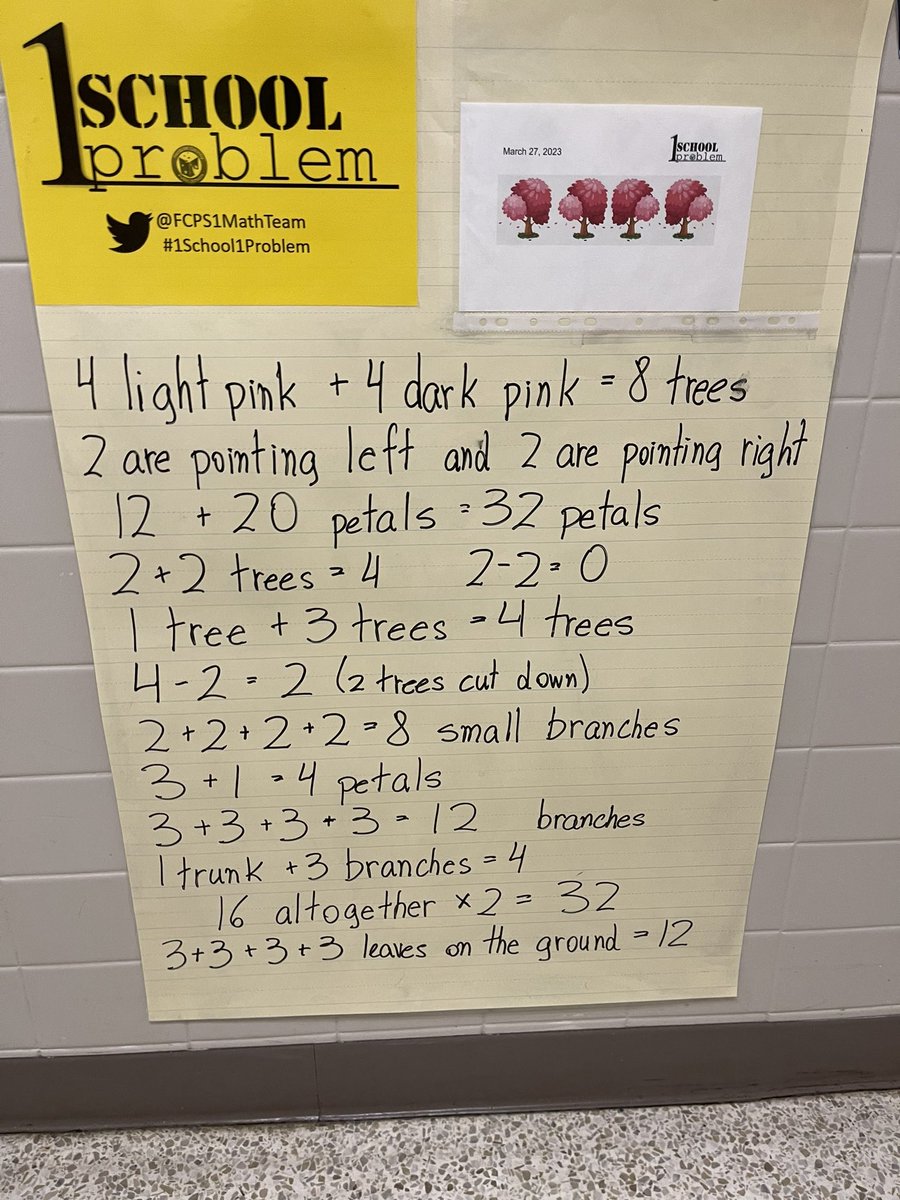 1 SCHOOL
problem
@FCPS1MathTeam
#1School1Problem
March 27, 2023
1 SCHOOL
problem
4 light pink + 4 dark pink = 8 trees
2 are pointing left and 2 are pointing right
12 + 20 petals = 32 petals
2 + 2 trees = 4 2 - 2 = 0
1 tree + 3 trees = 4 trees
4 - 2 = 2 (2 trees cut down)
2 + 2 + 2 + 2 = 8 small branches
3 + 1 = 4 petals
3 + 3 + 3 + 3 = 12 branches
1 trunk + 3 branches = 4
16 altogether × 2 = 32
3 + 3 + 3 + 3 leaves on the ground = 12